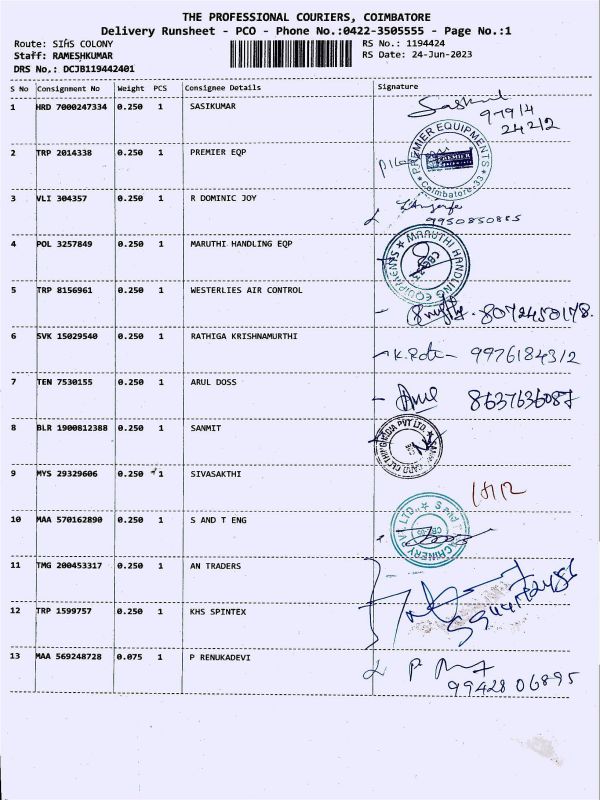 THE PROFESSIONAL COURIERS, COIMBATORE
Delivery Runsheet - PCO - Phone No.:0422-3505555 - Page No.:1
Route: SIHS COLONY RS No.: 1194424
Staff: RAMESHKUMAR RS Date: 24-Jun-2023
DRS No.: DCJB119442401
S No Consignment No Weight PCS Consignee Details Signature
1 HRD 7000247334 0.250 1 SASIKUMAR
2 TRP 2014338 0.250 1 PREMIER EQP PREMIER EQUIPMENTS PREMIER Coimbatore-33
3 VLI 304357 0.250 1 R DOMINIC JOY 9950850885
4 POL 3257849 0.250 1 MARUTHI HANDLING EQP MARUTHI HANDLING EQUIPMENTS
5 TRP 8156961 0.250 1 WESTERLIES AIR CONTROL 8072450178.
6 SVK 15029540 0.250 1 RATHIGA KRISHNAMURTHI 9976184312
7 TEN 7530155 0.250 1 ARUL DOSS Arul 8637636087
8 BLR 1900812388 0.250 1 SANMIT
9 MYS 29329606 0.250 1 SIVASAKTHI
10 MAA 570162890 0.250 1 S AND T ENG
11 TMG 200453317 0.250 1 AN TRADERS
12 TRP 1599757 0.250 1 KHS SPINTEX
13 MAA 569248728 0.075 1 P RENUKADEVI 99428 06895